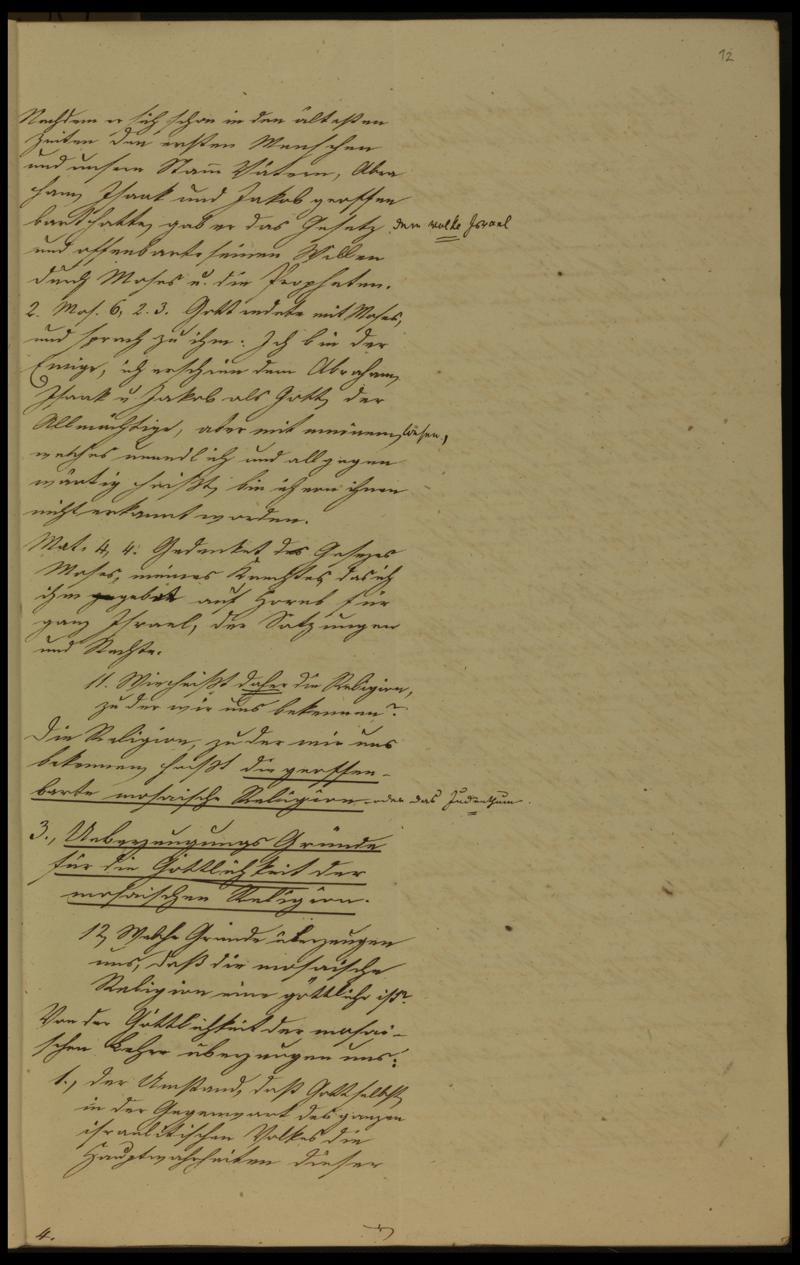 12
Nachdem er sich schon in den ältesten
Zeiten den ersten Menschen
und unsern Stam̅ Vätern, Abra
ham, Isaak und Jakob geoffen
bart hatte, gab er das Gesetz dem Volke Israel
und offenbarte seinen Willen
durch Moses u. die Propheten.
2. Mos. 6, 2. 3. Gott redete mit Moses,
und sprach zu ihm: Ich bin der
Ewige, ich erschien dem Abraham,
Isaak u Jakob als Gott, der
Allmächtige, aber mit meinem Wesen,
welches unendlich und allgegen
wärtig heißt, bin ich von ihnen
nicht erkannt worden.
Mal. 4, 4. Gedenket des Gesezes
Moses, meines Knechtes das ich
ihm gebot auf Horeb für
ganz Israel, der Satzungen
und Rechte.
11. Wie heißt daher die Religion,
zu der wir uns bekennen?
Die Religion, zu der wir uns
bekennen, heißt die geoffen-
barte mosaische Religion oder das Judenthum.
3., Ueberzeugungs Gründe
für die Göttlichkeit der
mosaischen Religion.
12, Welche Gründe überzeugen
uns, daß die mosaische
Religion eine göttliche ist?
Von der Göttlichkeit der mosai-
schen Lehre überzeugen uns:
1., der Umstand, daß Gott selbst
in der Gegenwart des ganzen
israelitischen Volkes die
Hauptwahrheiten dieser
4.